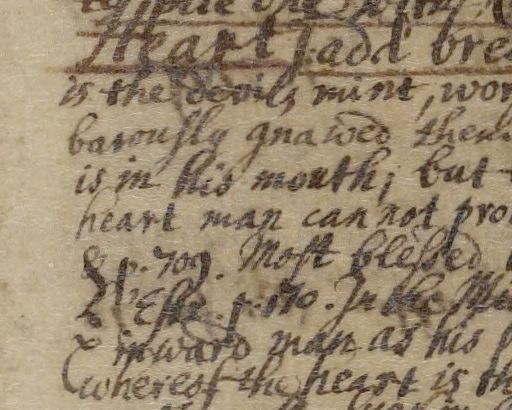 Heart. add brea
is the devils mint, wor
barously gnawed them
is in his mouth; but
heart man cannot pro
& p. 709. Most blessed
p. 170. In the
inward man as his
whereof the heart is th